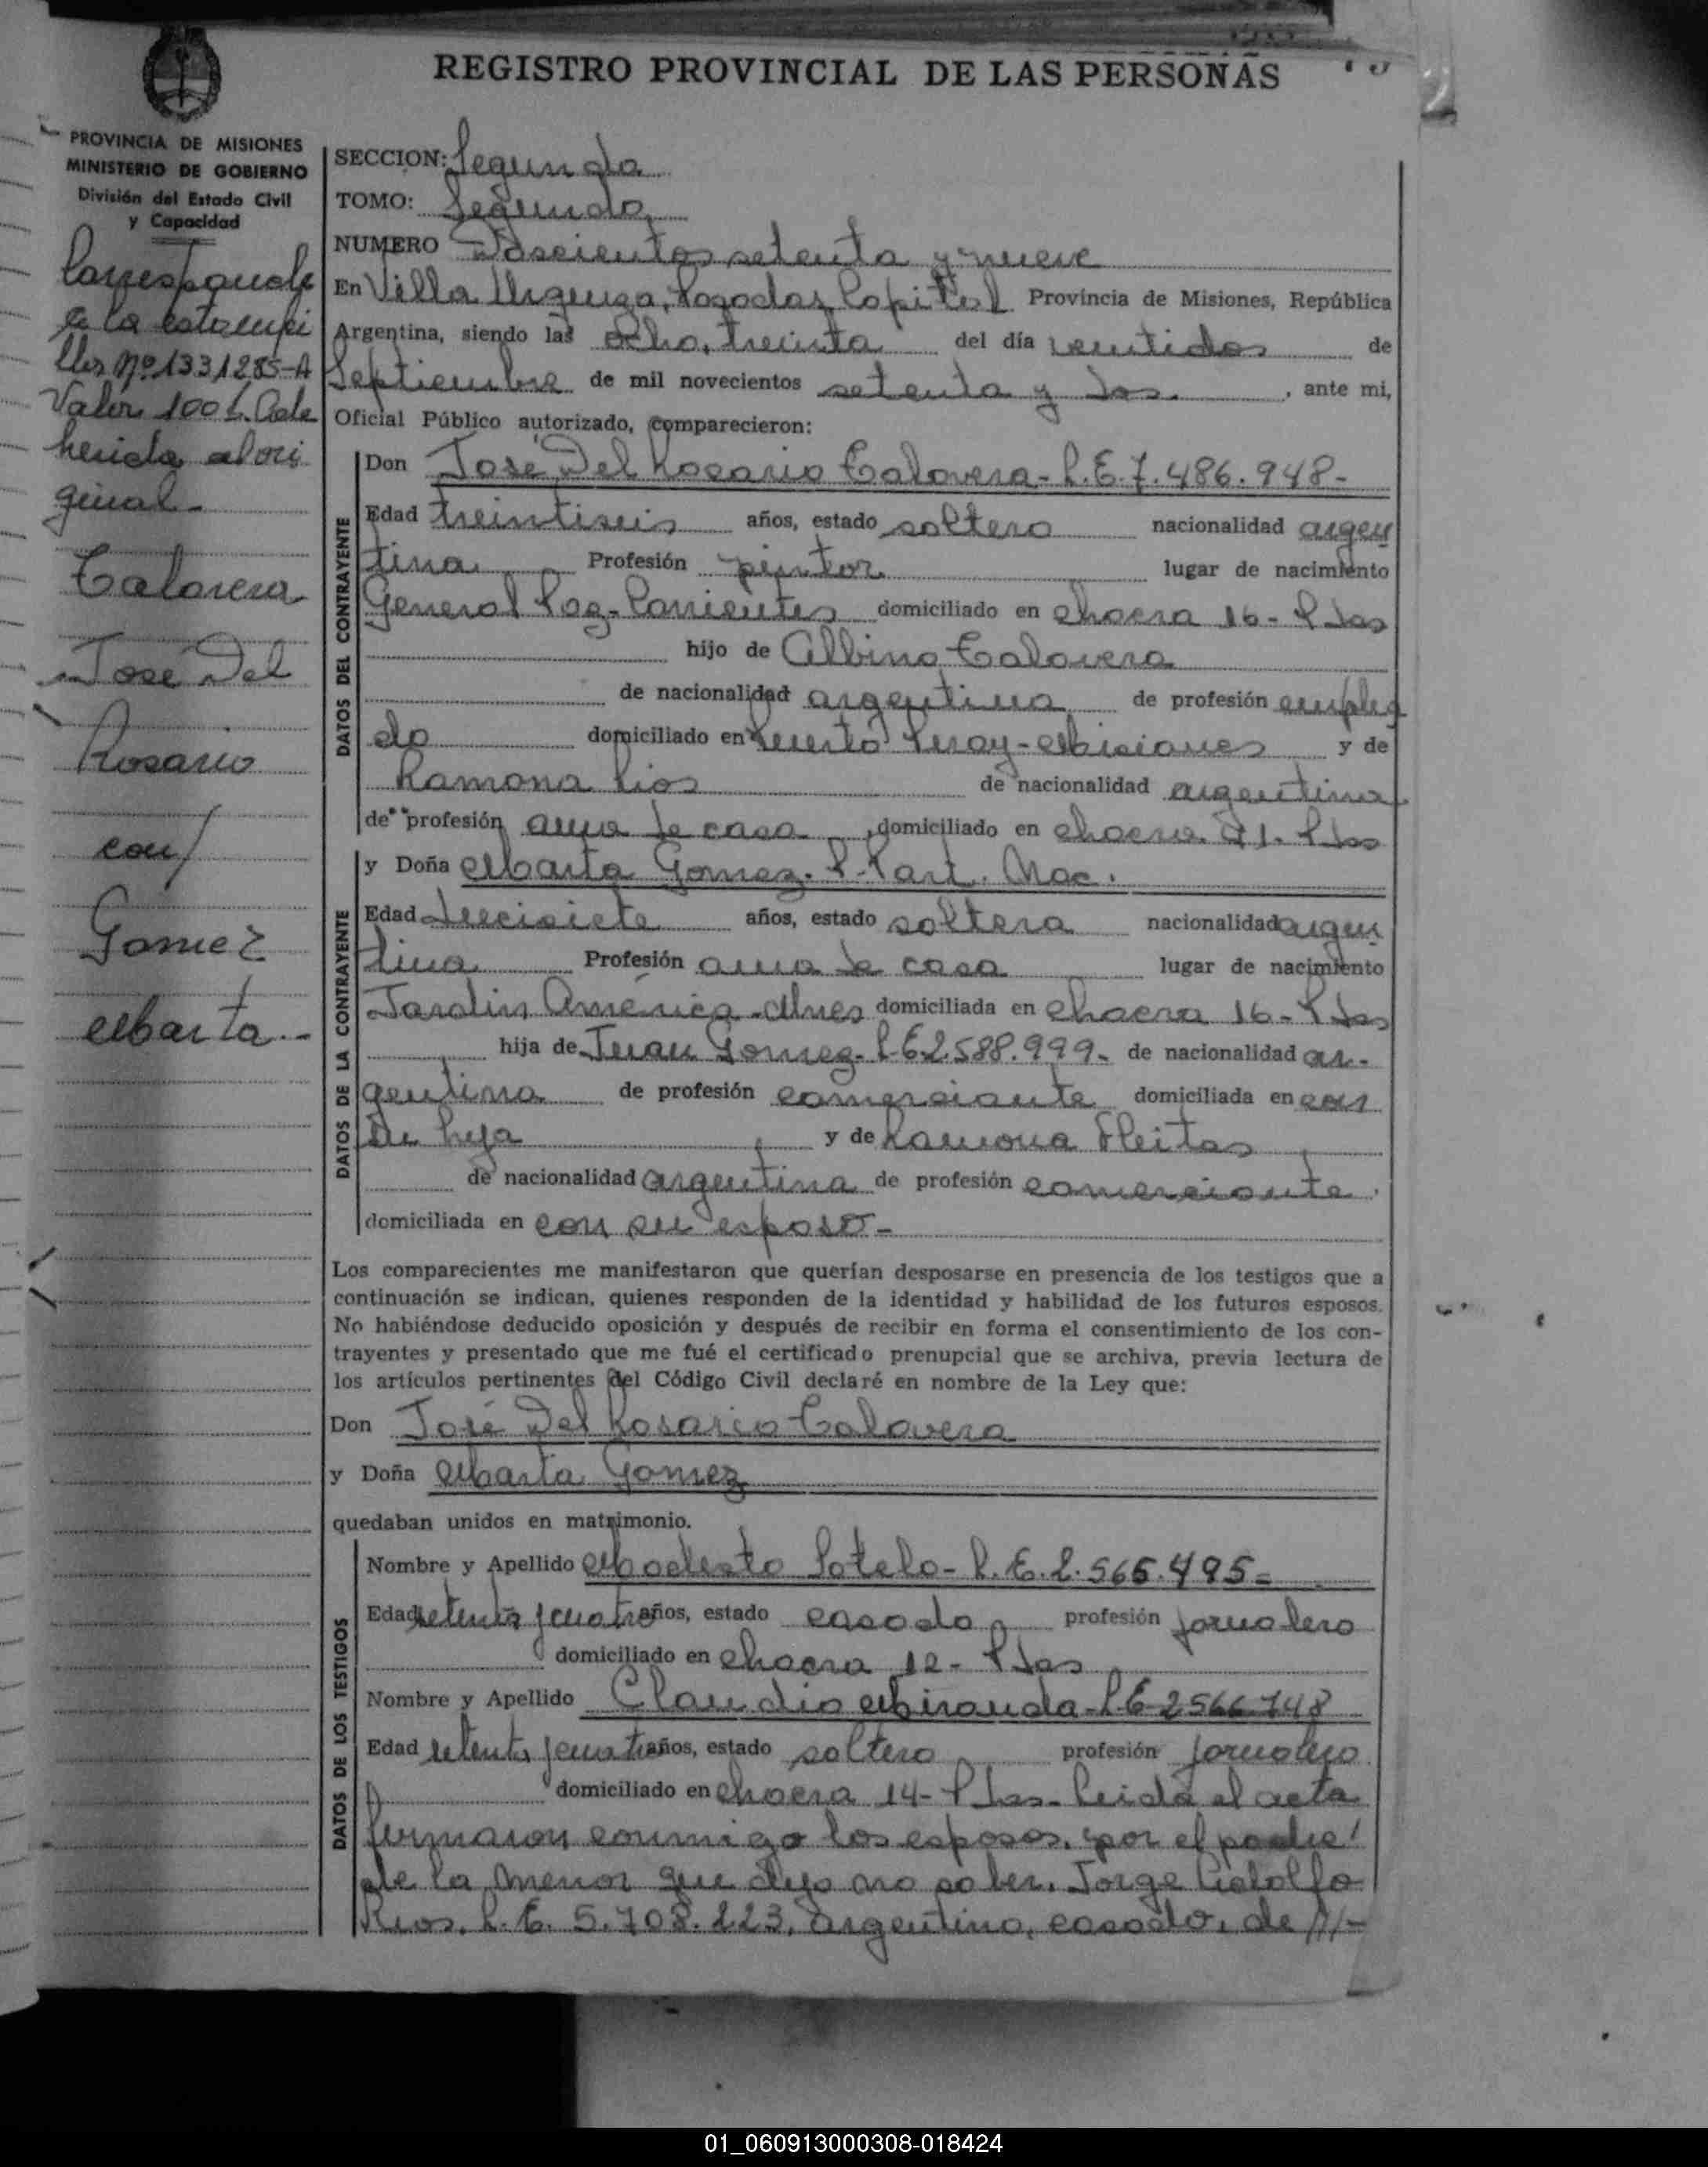 REGISTRO PROVINCIAL DE LAS PERSONAS
PROVINCIA DE MISIONES
MINISTERIO DE GOBIERNO
División del Estado Civil
y Capacidad
Corresponde
a la estampi
lla Nº 1331285-A
Valor 100 L. Ade
herida al ori
ginal-
Talavera
José Del
Rosario
con/
Gomez
Marta.-
SECCION: Segunda
TOMO: Segundo
NUMERO Doscientos setenta y nueve
En Villa Urquiza, Posadas Capital Provincia de Misiones, República
Argentina, siendo las ocho, treinta del día veintidos de
Septiembre de mil novecientos setenta y dos. , ante mi,
Oficial Público autorizado, comparecieron:
DATOS DEL CONTRAYENTE
Don José Del Rosario Talavera- L.E.7.486.948-
Edad treintiseis años, estado soltero nacionalidad argen
tina Profesión pintor lugar de nacimiento
General Paz- Corrientes domiciliado en chacra 16- Pdas
hijo de Albino Talavera
de nacionalidad argentina de profesión emplea
do domiciliado en Puerto Piray- Misiones y de
Ramona Rios de nacionalidad argentina
de profesión ama de casa , domiciliado en chacra 41. Pdas
DATOS DE LA CONTRAYENTE
y Doña Marta Gomez. P. Part. Nac.
Edad diecisiete años, estado soltera nacionalidad argen
tina Profesión ama de casa lugar de nacimiento
Jardin América- Mnes domiciliada en chacra 16- Pdas
hija de Juan Gomez- L.E 2.588.999- de nacionalidad ar-
gentina de profesión comerciante domiciliada en con
su hija y de Ramona Fleitas
de nacionalidad argentina de profesión comerciante.
domiciliada en con su esposo-
Los comparecientes me manifestaron que querían desposarse en presencia de los testigos que a
continuación se indican, quienes responden de la identidad y habilidad de los futuros esposos.
No habiéndose deducido oposición y después de recibir en forma el consentimiento de los con-
trayentes y presentado que me fué el certificado prenupcial que se archiva, previa lectura de
los artículos pertinentes del Código Civil declaré en nombre de la Ley que:
Don José Del Rosario Talavera
y Doña Marta Gomez
quedaban unidos en matrimonio.
DATOS DE LOS TESTIGOS
Nombre y Apellido Modesto Sotelo- L.E. 2.565.495-
Edad setenta y cuatro años, estado casado profesión jornalero
domiciliado en chacra 12- Pdas
Nombre y Apellido Claudio Miranda- L.E 2566748
Edad setenta y cuatro años, estado soltero profesión jornalero
domiciliado en chacra 14- Pdas- Leida el acta
firmaron conmigo los esposos, por el padre
de la menor que dijo no saber, Jorge
Rios, L.E. 5.708.223, argentino, casado, de //-
01_060913000308-018424